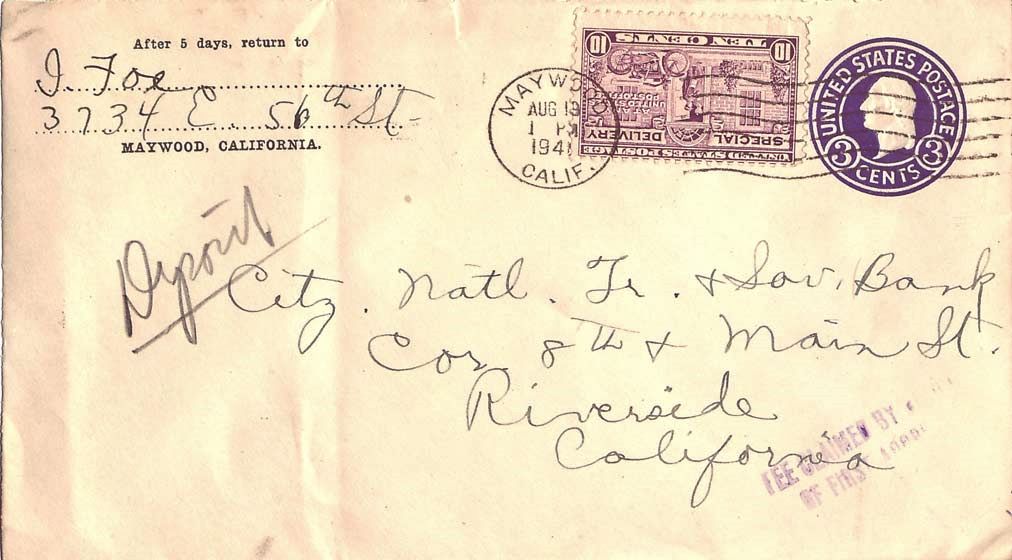 After 5 days, return to
J. Foe
3734 E. 56th St.
MAYWOOD, CALIFORNIA.
MAYWO
AUG 13
1 PM
1941
CALIF.
TEN CENTS
10 10
SPECIAL
DELIVERY
UNITED STATES POSTAGE
UNITED STATES POSTAGE
3 CENTS 3
Deposit
Citz. Natl. Tr. & Sav. Bank
Cor 8th & Main St.
Riverside
California
FEE CLAIMED BY
OF FIRST ADDRE